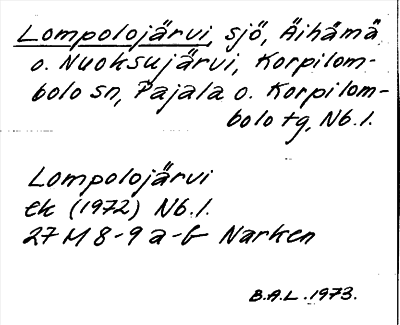 Lompolojärvi, sjö, Äihämä
o. Nuoksujärvi, Korpilom-
bolo sn, Pajala o. Korpilom-
bolo tg, Nb.l.
Lompolojärvi
ek (1972) Nb.l.
27 M 8-9 a-b Narken
B.A.L. 1973.